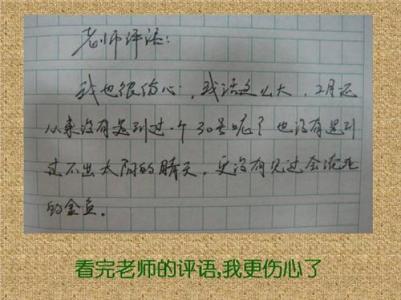 老师评语:
我也很伤心,我活这么大,2月还
从来没有遇到过一个30号呢?也没有遇到
过不出太阳的晴天,更没有见过会淹死
的金鱼。
看完老师的评语,我更伤心了